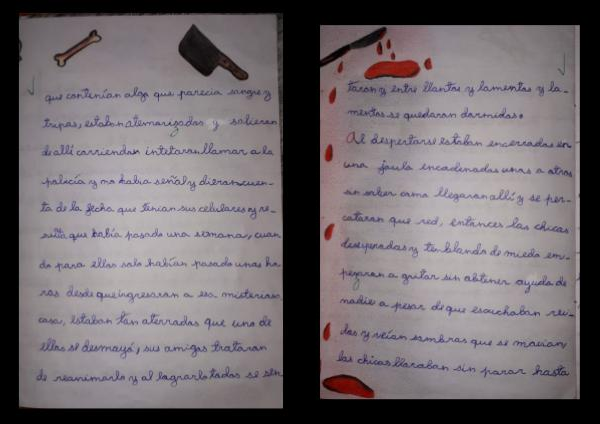 que contenían algo que parecía sangre y
tripas, estaban atemorizados y salieron
de allí corriendo intetaron llamar a la
policía y no había señal y dieron cuen-
ta de la fecha que tenian sus celulares y re-
sulta que había pasado una semana, cuan
do para ellos solo habían pasado unas ho
ras desde que ingresaron a esa misteriosa
casa, estaban tan aterrados que uno de
ellos se desmayó, sus amigos trataron
de reanimarlo y al lograrlo todos se sen
taron y entre llantos y lamentos y la-
mentos se quedaron dormidos.
Al despertarse estaban encerrados en
una jaula encadenados unos a otros
sin saber como llegaron allí y se per-
cataron que red, entonces los chicos
desesperados y temblando de miedo em-
pezaron a gritar sin obtener ayuda de
nadie a pesar de que escuchaban rui-
dos y veían sombras que se movían
los chicos lloraban sin parar hasta